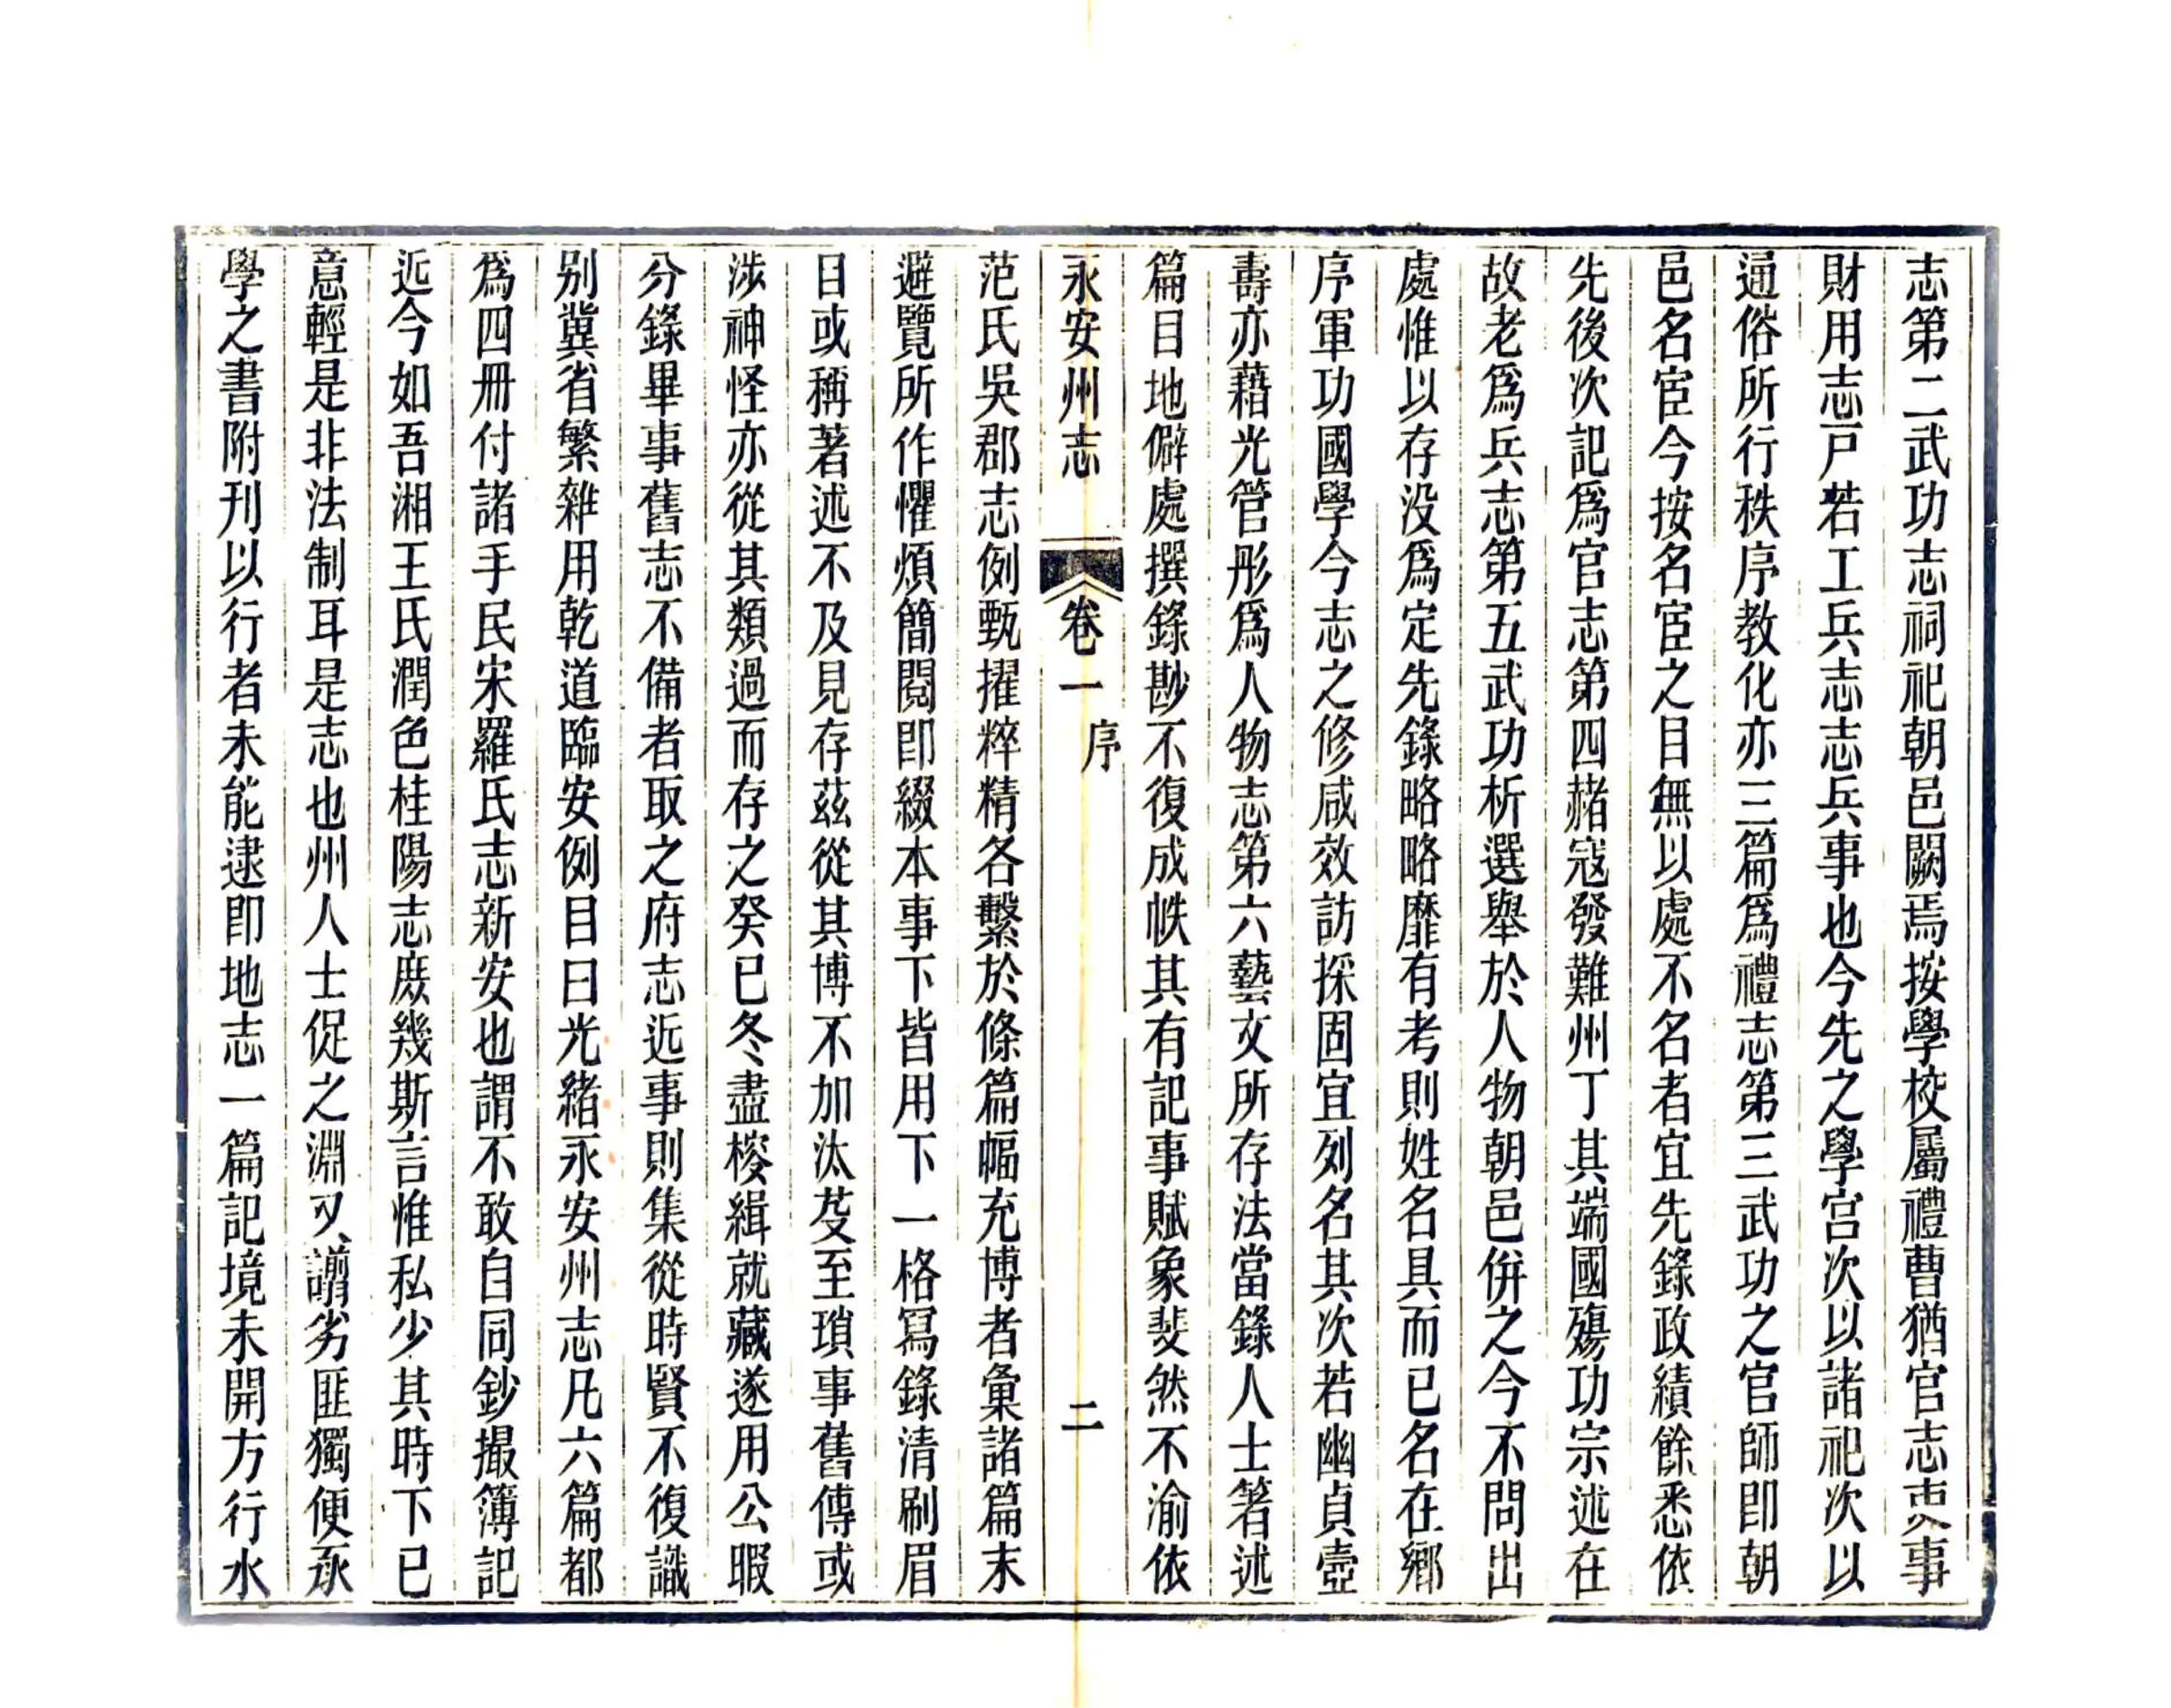 志第二武功志祠祀朝邑闕焉按學校屬禮曹猶官志吏事
財用志戸若工兵志志兵事也今先之學宮次以諸祀次以
通俗所行秩序教化亦三篇爲禮志第三武功之官師即朝
邑名宦今按名宦之目無以處不名者宜先錄政績餘悉依
先後次記爲官志第四赭寇發難州丁其端國殤功宗述在
故老爲兵志第五武功析選舉於人物朝邑併之今不問出
處惟以存没爲定先錄略略靡有考則姓名具而已名在鄉
序軍功國學今志之修咸效訪採固宜列名其次若幽貞壼
壽亦藉光管彤爲人物志第六藝文所存法當錄人士箸述
篇目地僻處撰錄尠不復成帙其有記事賦象斐然不渝依
永安州志 卷一 序 二
范氏吳郡志例甄擢粹精各繫於條篇幅充博者彙諸篇末
避覽所作懼煩簡閱即綴本事下皆用下一格冩錄清刷眉
目或稱著述不及見存茲從其博不加汰芟至瑣事舊傳或
涉神怪亦從其類過而存之癸巳冬盡椶緝就藏遂用公暇
分錄畢事舊志不備者取之府志近事則集從時賢不復識
别冀省繁雜用乾道臨安例目曰光緒永安州志凡六篇都
爲四冊付諸手民宋羅氏志新安也謂不敢自同鈔撮簿記
近今如吾湘王氏潤色桂陽志庶幾斯言惟私少其時下已
意輕是非法制耳是志也州人士促之淵又譾劣匪獨便承
學之書附刊以行者未能逮即地志一篇記境未開方行水